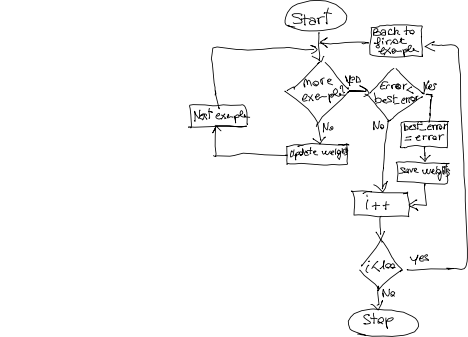 Start
Back to
first
example
more
exemple?
yes
Error<
best error
Yes
Next exemple
No
No
best_error
= error
Update weights
save weights
i++
i<100
yes
No
Stop